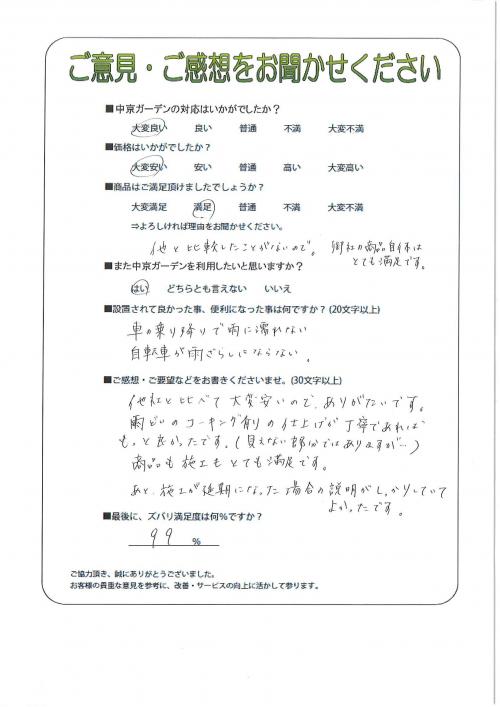 ご意見・ご感想をお聞かせください
■中京ガーデンの対応はいかがでしたか？
大変良い 良い 普通 不満 大変不満
■価格はいかがでしたか？
大変安い 安い 普通 高い 大変高い
■商品はご満足頂けましたでしょうか？
大変満足 満足 普通 不満 大変不満
⇒よろしければ理由をお聞かせください。
他と比較したことがないので。 御社の商品自体は
とても満足です。
■また中京ガーデンを利用したいと思いますか？
はい どちらとも言えない いいえ
■設置されて良かった事、便利になった事は何ですか？(20文字以上)
車の乗り降りで雨に濡れない
自転車が雨ざらしにならない。
■ご感想・ご要望などをお書きくださいませ。(30文字以上)
他社と比べて大変安いので、ありがたいです。
雨どいのコーキング剤の仕上げが丁寧であれば
もっと良かったです。(見えない部分ではありますが…)
商品も施工もとても満足です。
あと、施工が延期になった場合の説明がしっかりしていて
よかったです。
■最後に、ズバリ満足度は何％ですか？
99 ％
ご協力頂き、誠にありがとうございました。
お客様の貴重な意見を参考に、改善・サービスの向上に活かして参ります。